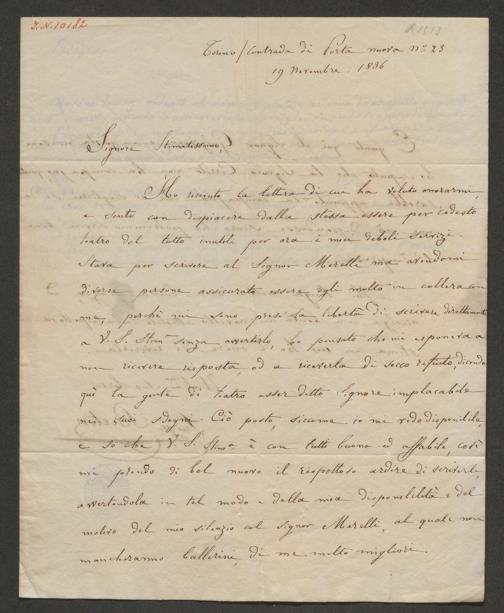 I.N. 10182
Torino / Contrada di Porta nuova nº 23
19 Novembre 1836
Signore Stimatissimo
Ho ricevuto la lettera di cui ha voluto onorarmi,
e sento con dispiacere dalla stessa essere per codesto
teatro del tutto inutili per ora i miei deboli servizi.
Stava per scrivere al Signor Merelli ma avendomi
diverse persone assicurato essere egli molto in collera con
me, perchè mi sono presa la libertà di scrivere direttamente
a V. S. Stimª senza avvertirlo, ho pensato che mi esponeva a
non ricevere risposta, od a riceverla di secco rifiuto, dicendo
quì la gente di teatro esser detto Signore implacabile
nei suoi sdegni. Ciò posto, siccome io me vedo disponibile,
e so che V. S. Stimª è con tutti buona ed affabile, così
mi prendo di bel nuovo il rispettoso ardire di scriverle,
avvertendola in tal modo e della mia disponibilità e del
motivo del mio silenzio col Signor Merelli, al quale non
mancheranno ballerine, di me molto migliori.